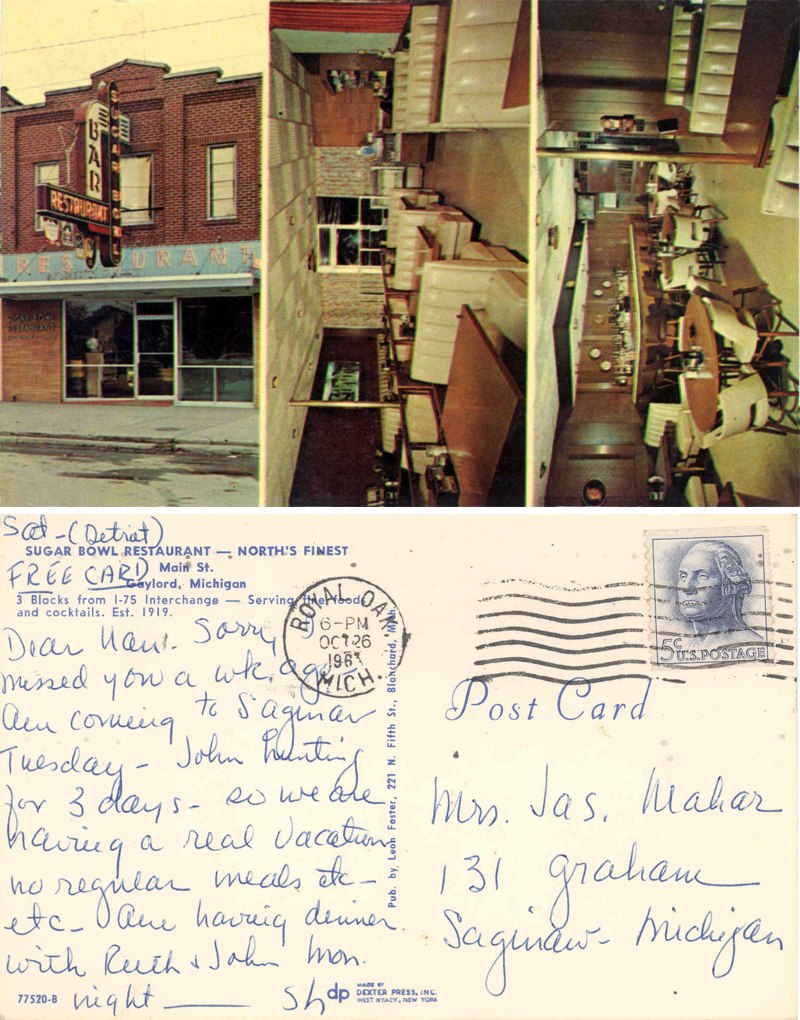 SUGAR BOWL
BAR
RESTAURANT
RESTAURANT
SUGAR BOWL
RESTAURANT
Sat - (Detroit)
SUGAR BOWL RESTAURANT — NORTH'S FINEST
FREE CARD Main St.
Gaylord, Michigan
3 Blocks from I-75 Interchange — Serving fine food
and cocktails. Est. 1919.
Dear Nan. Sorry I
missed you a wk. ago.
Am coming to Saginaw
Tuesday - John hunting
for 3 days - so we are
having a real vacation
no regular meals etc -
etc - Am having dinner
with Ruth & John Mon.
night — Sh
77520-B
dp MADE BY
DEXTER PRESS, INC.
WEST NYACK, NEW YORK
Pub. by Leon Foster, 221 N. Fifth St., Blanchard, Mich.
ROYAL OAK
6-PM
OCT 26
196
MICH.
5c U.S. POSTAGE
Post Card
Mrs. Jas. Mahar
131 Graham
Saginaw - Michigan